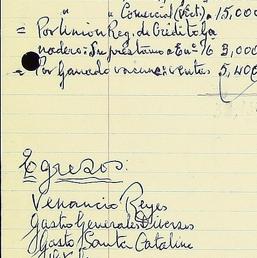 " " Comercial (Vcts) a 15,000
= Por Union Reg. de Crédito Ga
nadero: Su prestamo a Enº 76 3,000
= Por Ganado vacuno: ventas 5,400
Egresos:
Venancio Reyes
Gastos Generales Diversos
Gasto Santa Catalina